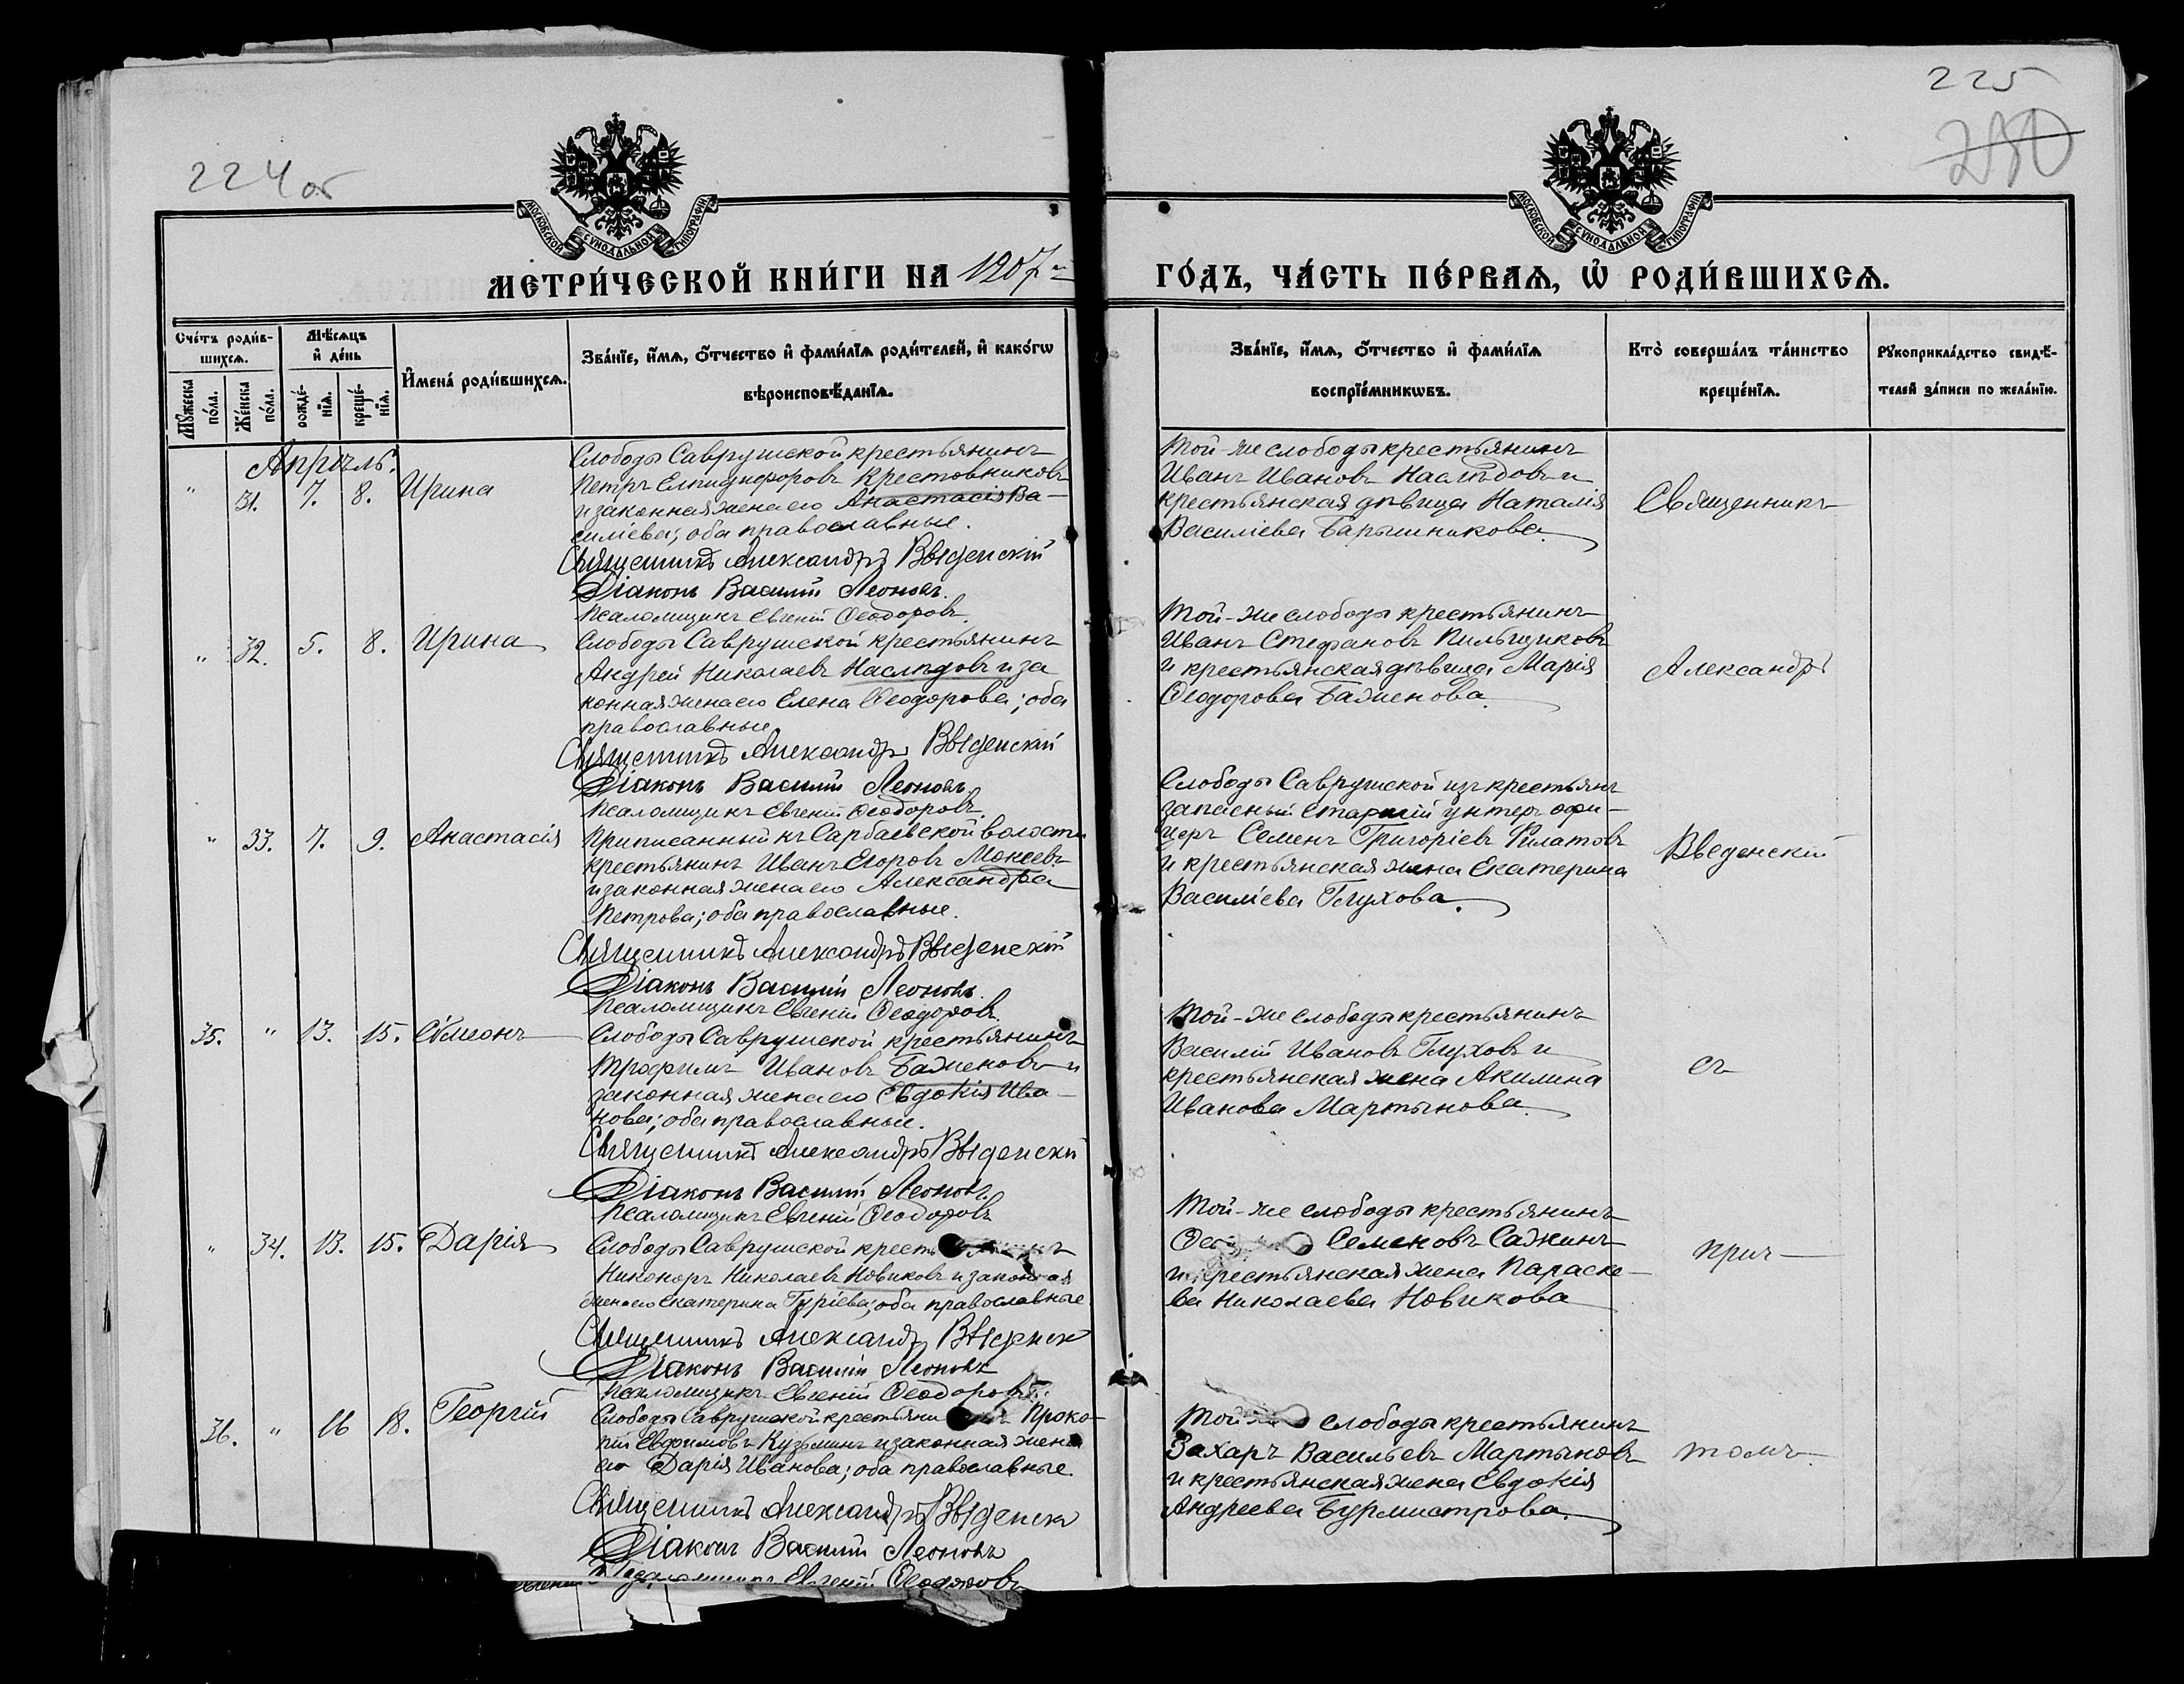 225
250
224 об
МОСКОВСКОЙ СѴНОДАЛЬНОЙ ТИПОГРАФІИ
МОСКОВСКОЙ СѴНОДАЛЬНОЙ ТИПОГРАФІИ
МЕТРИ́ЧЕСКОЙ КНИ́ГИ НА 1907 й ГО́ДЪ, ЧА́СТЬ ПЕ́РВАѦ, Ѿ РОДИ́ВШИХСѦ.
Сче́тъ роди́в-
шихсѧ.
Мꙋ́жеска по́ла.
Же́нска по́ла.
Мѣ́сѧцъ
и҆ де́нь
рожде́-
нїѧ.
креще́-
нїѧ.
И҆мена̀ роди́вшихсѧ.
Зва́нїе, и҆́мѧ, ѻ҆́тчество и҆ фами́лїѧ роди́телей, и҆ како́гѡ
вѣроисповѣ́данїѧ.
Зва́нїе, и҆́мѧ, ѻ҆́тчество и҆ фами́лїѧ
воспрїе́мникѡвъ.
Кто̀ соверша́лъ та́инство
креще́нїѧ.
Рꙋкоприкла́дство свидѣ́-
телей за́писи по жела́нїю.
Апрѣль.
" 31. 7. 8. Ирина
Слободы Саврушской крестьянинъ
Петръ Елпидифоровъ Крестовниковъ
и законная жена его Анастасія Ва-
силіева; оба православные.
Священникъ Александръ Введенскій
Діаконъ Василій Леоновъ.
Псаломщикъ Евгеній Ѳеодоровъ.
Той-же слободы крестьянинъ
Иванъ Ивановъ Наслѣдовъ и
крестьянская дѣвица Наталія
Василіева Барышникова.
Священникъ
" 32. 5. 8. Ирина
Слободы Саврушской крестьянинъ
Андрей Николаевъ Наслѣдовъ и за
конная жена его Елена Ѳеодорова; оба
православные
Священникъ Александръ Введенскій
Діаконъ Василій Леоновъ.
Псаломщикъ Евгеній Ѳеодоровъ.
Той-же слободы крестьянинъ
Иванъ Стефановъ Пильщиковъ
и крестьянская дѣвица Марія
Ѳеодорова Баженова.
Александръ
" 33. 7. 9. Анастасія
Приписанный къ Сарбаевской волости
крестьянинъ Иванъ Егоровъ Мокеевъ
и законная жена его Александра
Петрова; оба православные.
Священникъ Александръ Введенскій
Діаконъ Василій Леоновъ.
Псаломщикъ Евгеній Ѳеодоровъ.
Слободы Саврушской изъ крестьянъ
запасный старшій унтеръ офи-
церъ Семенъ Григоріевъ Филатовъ
и крестьянская жена Екатерина
Василіева Глухова.
Введенскій
35. " 13. 15. Сѵмеонъ
Слободы Саврушской крестьянинъ
Трофимъ Ивановъ Баженовъ и
законная жена его Евдокія Ива-
нова; оба православные.
Священникъ Александръ Введенскій
Діаконъ Василій Леоновъ.
Псаломщикъ Евгеній Ѳеодоровъ
Той-же слободы крестьянинъ
Василій Ивановъ Глуховъ и
крестьянская жена Акилина
Иванова Мартынова.
съ
" 34. 13. 15. Дарія
Слободы Саврушской
Никоноръ Николаевъ Новиковъ и законная
жена его Екатерина Гуріева; оба православные.
Священникъ Александръ Введенск
Діаконъ Василій Леоновъ
Псаломщикъ Евгеній Ѳеодоровъ.
Той-же слободы крестьянинъ
Семеновъ Сажинъ
и крестьянская жена Параске-
ва Николаева Новикова
прич-
36. " 16 18. Георгій
Слободы Саврушской Проко-
пій Евфимовъ Кузьминъ и законная жена
его Дарія Иванова; оба православные.
Священникъ Александръ Введенск
Діаконъ Василій Леоновъ
Псаломщикъ Евгеній Ѳеодоровъ
Той слободы крестьянинъ
Захаръ Васильевъ Мартыновъ
и крестьянская жена Евдокія
Андреева Бурмистрова.
томъ.